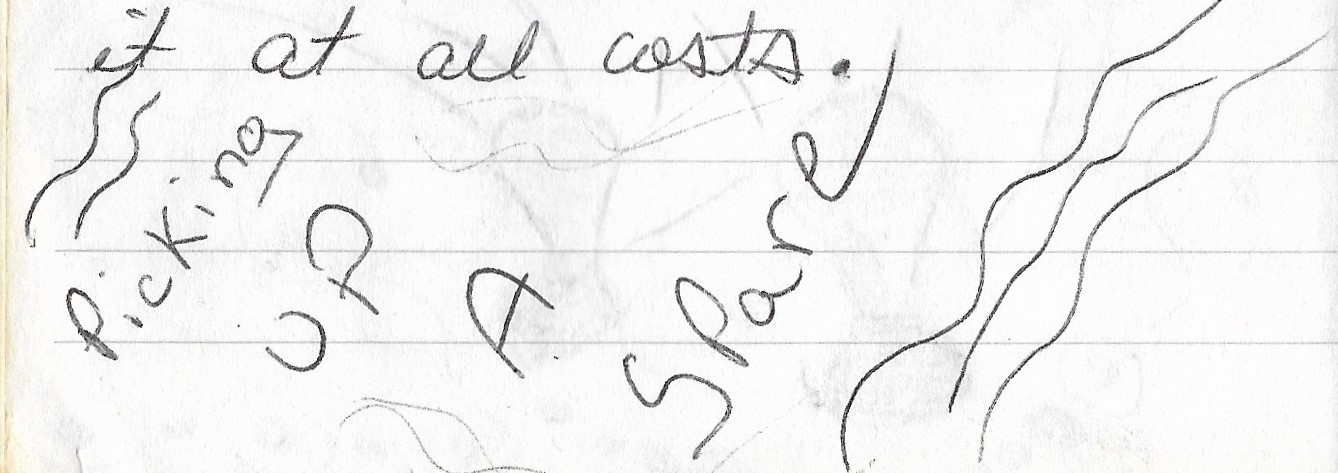 it at all costs.
Picking
UP
A
SPare